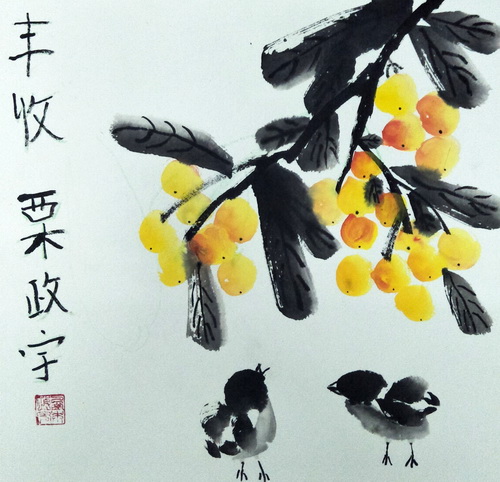 丰收 栗政宇